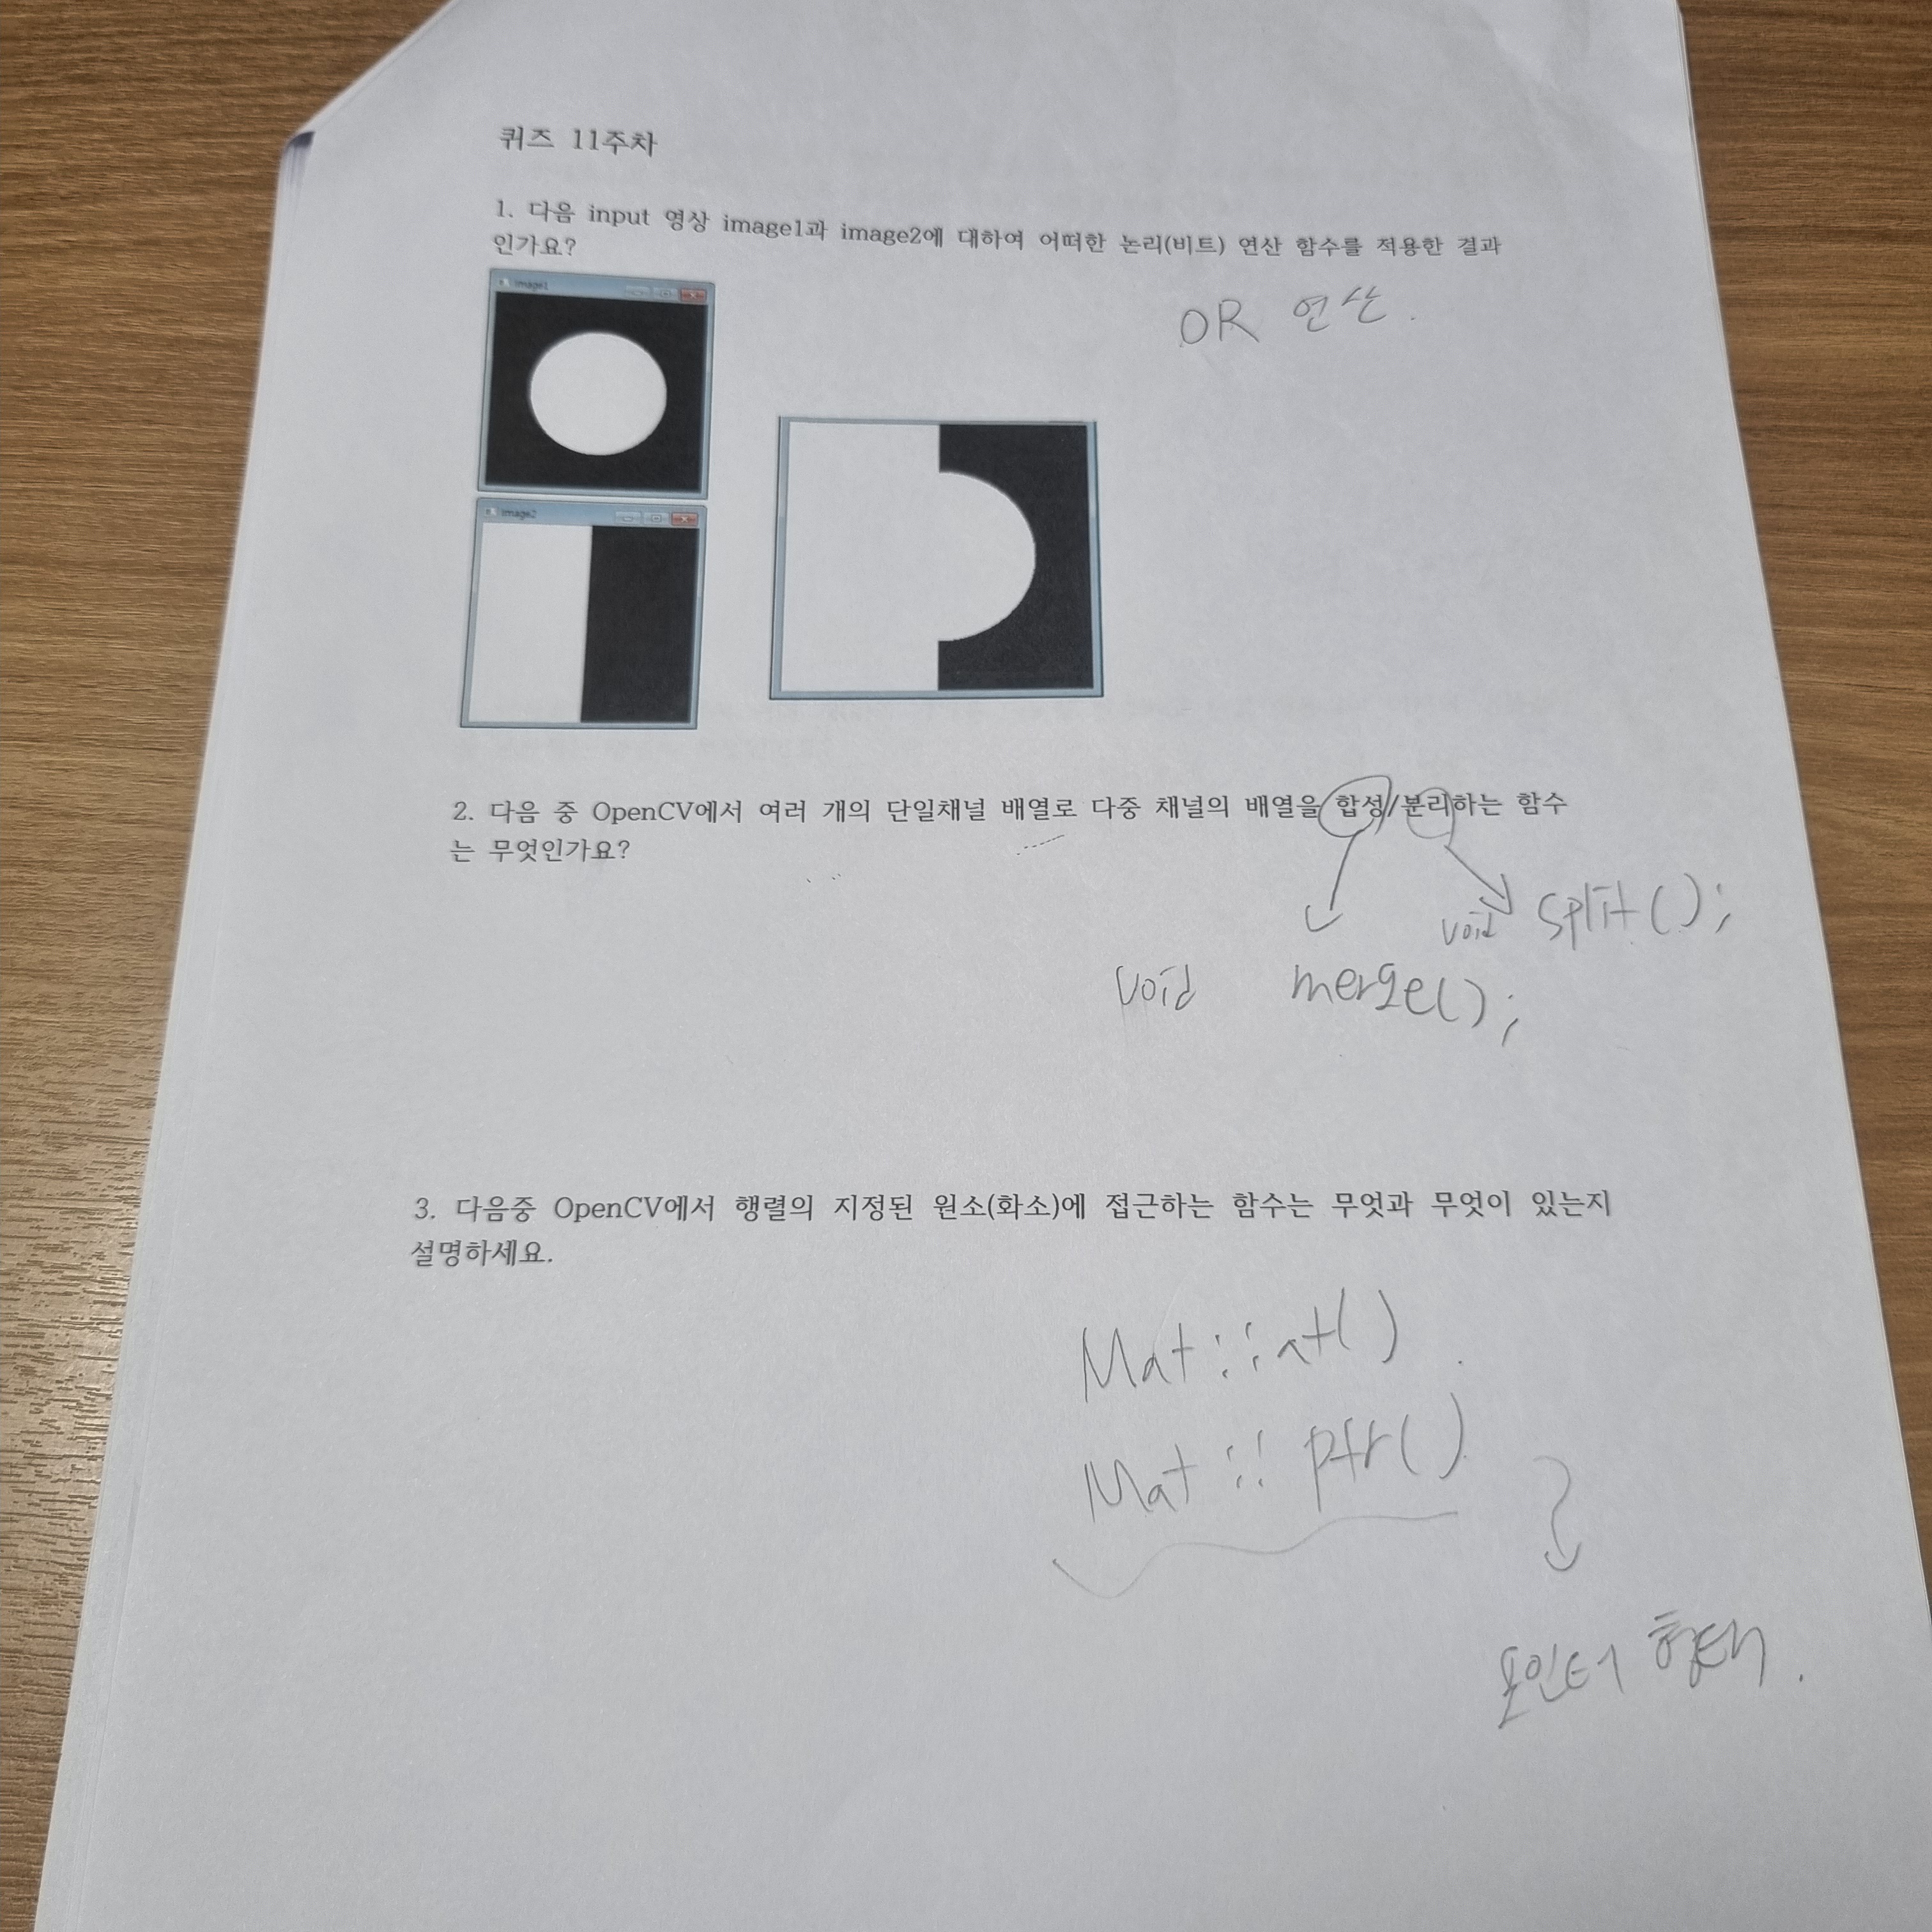 퀴즈 11주차
1. 다음 input 영상 image1과 image2에 대하여 어떠한 논리(비트) 연산 함수를 적용한 결과
인가요?
image1
OR 연산.
image2
2. 다음 중 OpenCV에서 여러 개의 단일채널 배열로 다중 채널의 배열을 합성/분리하는 함수
는 무엇인가요?
void split();
void merge();
3. 다음중 OpenCV에서 행렬의 지정된 원소(화소)에 접근하는 함수는 무엇과 무엇이 있는지
설명하세요.
Mat::at()
Mat::ptr()
포인터 형태.